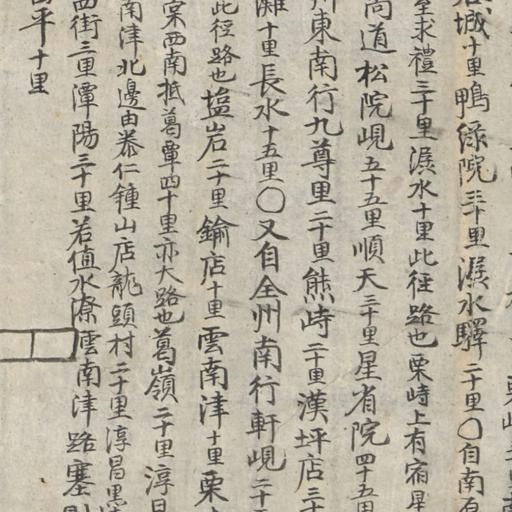 城十里鴨綠院三十里潺水驛二十里〇自南原
求禮三十里潺水十里此徑路也栗峙上有宿星
道松院峴五十五里順天三十里星省院四十五里
州東南行九尊里二十里熊峙二十里漢坪店三十
灘十里長水十五里〇又自全州南行軒峴二十
此徑路也塩岩二十里鍮店十里雲南津十里栗
棠西南抵葛覃四十里亦大路也葛嶺二十里淳昌
南津北邊由泰仁鍾山店龍頭村二十里淳昌
西街三里潭陽三十里若値水漲雲南津路塞則
平十里